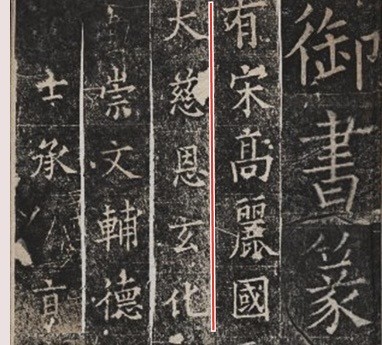 御書篆
有宋高麗國
大慈恩玄化
崇文輔德
士承